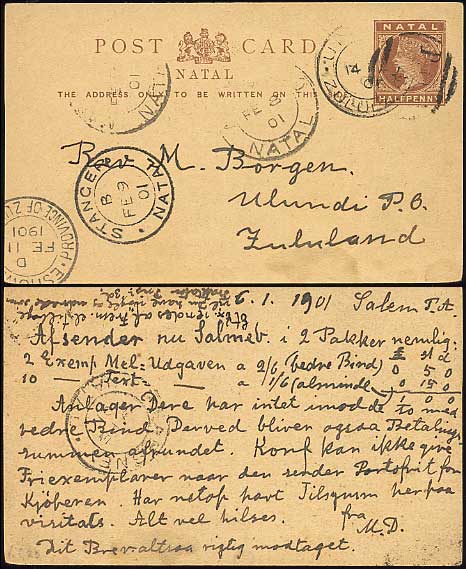 POST CARD
NATAL
THE ADDRESS ONLY TO BE WRITTEN ON THIS
NATAL
HALFPENNY
NATAL
FE 8
01
NATAL
STANGER
B
FE 9
01
NATAL
D
FE 11
1901
Rev M. Borgen.
Ulundi P.O.
Zululand
6.1.1901 Salem P.A.
Afsender nu Salmeb. i 2 Pakker nemlig:
£ s d
2 Exemp Mel. Udgaven a 2/6 (bedre Bind) 0 5 0
10 — Text — a 1/6 (almindel) 0 15 0
1 0 0
Antager Dere har intet imod de to med
bedre Bind. Derved bliver ogsaa Betalings
summen afrundet. Konf. kan ikke give
Friexemplarer naar den sender Portofrit fra
Kjøberen. Har netop havt Tilsynsm herpaa
visitats. Alt vel hilses. fra
M.D.
Dit Brev altsaa rigtig modtaget.